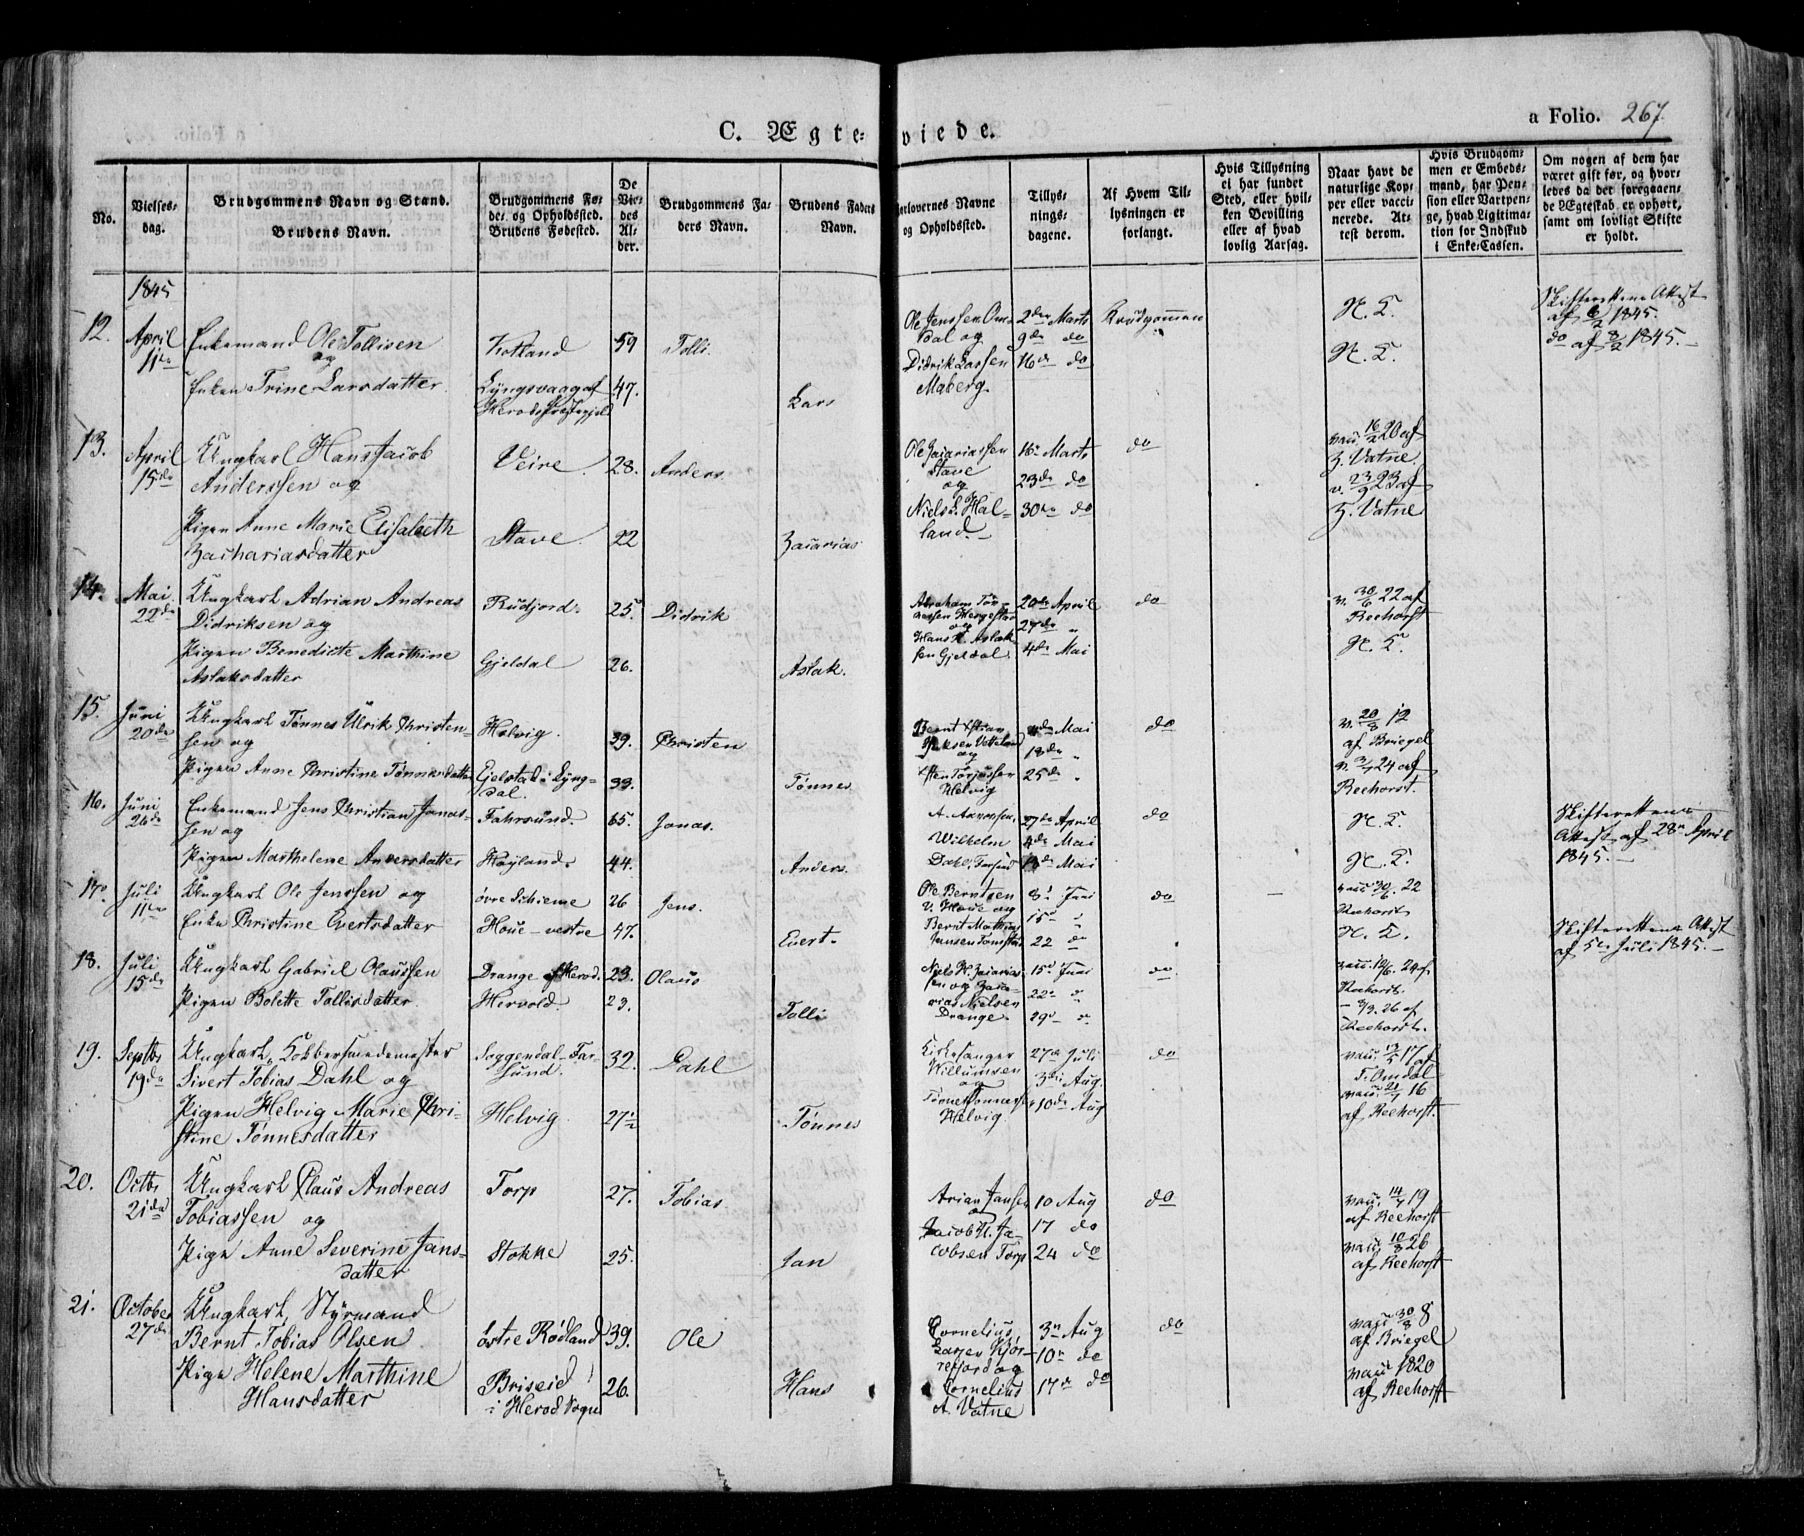 C. Ægte-
viede.
a Folio. 267.
No.
Vielses-
dag.
Brudgommens Navn og Stand.
Brudens Navn.
Brudgommens Fø-
de- og Opholdssted.
Brudens Fødested.
De
Vie-
des
Al-
der.
Brudgommens Fa-
ders Navn.
Brudens Faders
Navn.
Forlovernes Navne
og Opholdssted.
Tillys-
nings-
dagene.
Af Hvem Til-
lysningen er
forlangt.
Hvis Tillysning
ei har fundet
Sted, eller hvil-
ken Bevilling
eller af hvad
lovlig Aarsag.
Naar havt de
naturlige Kop-
per eller vacci-
nerede. At-
test derom.
Hvis Brudgom-
men er Embeds-
mand, har Pen-
sion eller Vartpen-
ge, hvad Ligitima-
tion for Indskud
i Enke-Cassen.
Om nogen af dem har
været gift før, og hvor-
ledes da der foregaaen-
de Ægteskab er ophørt,
samt om lovligt Skifte
er holdt.
1845
12.
April
11te
Enkemand Ole Tollisen
og
Enken Trine Larsdatter
59
47.
Lyngsvaag af
Herods Præstegjeld
Tolli.
Lars
Ole Jenssen Om-
dal og
Didrik Larsen
Maberg.
2den Marts
9de do
16de do
Brudgommen
N. B.
N. B.
Skifterettens Attest
af 6/2 1845.
do af 8/2 1845.
13.
April
15de
Ungkarl Hans Jacob
Anderssen og
Pigen Anne Marie Elisabeth
Zachariasdatter
Veire.
Stave
28.
22
Anders
Zacarias
Ole Zacariassen
Stave
og
Niels Hal-
land.
16de Marts
23de do
30te do
do
vacc. 16/2 20 af
Z. Vatne.
v. 23/9 23 af
Z. Vatne
14.
Mai
22de
Ungkarl Adrian Andreas
Didriksen og
Pigen Benedicte Marthine
Aslaksdatter
Rudjord.
Gjeldal
25
26.
Didrik
Aslak.
Abraham Tøn-
nessen Heggestad
og
Hans H. Aslak-
sen Gjeldal.
20de April
27de "
4de Mai
do
v. 30/6 22 af
Reehorst
N. B.
15.
Juni
20de
Ungkarl Tønnes Ulrik Christen-
sen og
Pigen Anne Christine Tønnesdatter
Helvig.
Ejelstad i Lyng-
dal.
39.
33.
Christen
Tønnes
Helvig
Mai
18de "
25de "
do
v. 20/3 12
af Briegel
v. 3/7 24 af
Reehorst.
16.
Juni
26de
Enkemand Jens Christian Jonas-
sen og
Pigen Marthelene Andersdatter
Fahrsund.
Høyland.
65.
44.
Jonas.
Anders.
Wilhelm
Dahl, Farsund
27de April
4de Mai
Mai
do
N. B.
N. B.
Skifterettens
Attest af 28de April
1845.
17.
Juli
11te
Ungkarl Ole Jenssen og
Enke Christine Evertsdatter
øvre Skieme
Houe - vestre
26
47.
Jens.
Evert.
Ole Berntsen
V. Houe og
Bernt Mathias
Jansen Tomstad
8' Juni
15d "
22 do
do
vacc 30/6. 22
Reehorst
N. B.
Skifterettens Attest
af 5te Juli 1845.
18.
Juli
15de
Ungkarl Gabriel Olaussen
Pigen Bolette Tollisdatter.
Drange af Herod.
Hervold.
23.
23.
Olaus
Tolli
Niels H. Zacarias-
sen og Zaca-
rias Nielsen
Drange.
15d Juni
22de "
29d "
do.
vacc. 19/6. 24 af
Reehorst.
- 3/9. 26 af
Reehorst.
19.
Septbr
19de
Ungkarl, Kobbersmedemester
Sivert Tobias Dahl og
Pigen Helvig Marie Chri-
stine Tønnesdatter
Soggendal - Far-
sund.
Helvig.
32.
27½
Dahl
Tønnes
Kirkesanger
Willumsen
og
Helvig.
27de Juli
3die Aug.
10de Aug
do
vacc. 13/5 17 af
F. Omdal
vacc. 21/7 16
af Reehorst.
20.
Octbr
21de
Ungkarl Claus Andreas
Tobiassen og
Pige Anne Severine Jans-
datter
Torp
Stokke
27.
25.
Tobias
Jan
Arian Jansen
og
Jacob N. Ja-
cobsen Torp
10 Aug
17 do
24 do
do
vacc. 14/7 19
af Reehorst
vacc. 10/8 26
af Reehorst
21.
October
27de
Ungkarl, Styrmand
Bernt Tobias Olsen
Pige Helene Marthine
Hansdatter
østre Rødland
Briseid
i Herod Sogn
39.
26.
Ole
Hans
Cornelius
Larsen Kjør-
refjord og
Cornelius
A. Vatne
3de Aug
10de do
17de do
do
vacc 30/8 8
af Briegel
vacc 1820
af Reehorst